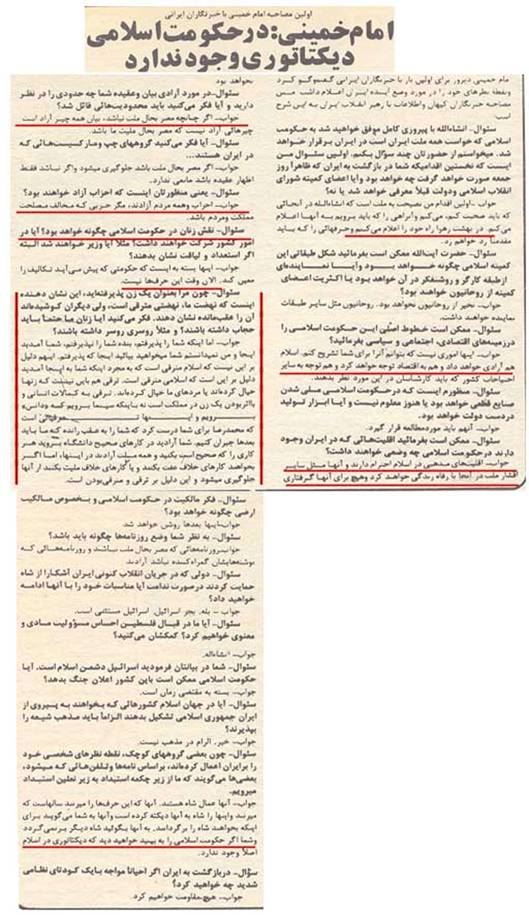 اولین مصاحبه امام خمینی با خبرنگاران ایرانی
امام خمینی: در حکومت اسلامی
دیکتاتوری وجود ندارد
امام خمینی دیروز برای اولین بار با خبرنگاران ایرانی گفت‌وگو کرد
و نقطه نظرهای خود را در مورد وضع آینده ایران اعلام داشت متن
مصاحبه خبرنگاران کیهان و اطلاعات با رهبر انقلاب ایران به این شرح
است:
سئوال- انشاءالله با پیروزی کامل موفق خواهید شد به حکومت
اسلامی که خواست همه ملت ایران است در ایران برقرار خواهد
شد. میخواستم از حضورتان چند سؤال بکنم. اولین سئوال من
اینست که نخستین اقدامیکه شما در بازگشت به ایران که ظاهراً روز
جمعه صورت خواهد گرفت چه خواهد بود و آیا اعضای کمیته شورای
انقلاب اسلامی و دولت قبلاً معرفی خواهد شد یا نه؟
جواب- اولین اقدام من نصیحت به ملت است که انشاءالله در آنجائی
که باید صحبت کنم، می‌کنم و آنراهی را که باید برویم به آنها اعلام
می‌کنم. در بهشت زهرا راه خود را اعلام می‌کنم و حرفهائی را که باید
مقدمتاً زد خواهم زد.
سئوال- حضرت آیت‌الله ممکن است بفرمائید شکل طبقاتی این
کمیته اسلامی چگونه خواهد بود و آیا نماینده‌ای
از طبقه کارگر و روشنفکر در آن خواهد بود یا اکثریت اعضای
کمیته از روحانیون خواهند بود؟
جواب- نخیر از روحانیون نخواهد بود. روحانیون مثل سایر طبقات
نماینده خواهند داشت.
سئوال- ممکن است خطوط اصلی این حکومت اسلامی را
در زمینه‌های اقتصادی، اجتماعی و سیاسی بفرمائید؟
جواب- اینها اموری نیست که بتوانم آنرا برای شما تشریح کنم. اسلام
هم آزادی خواهد داد و هم به اقتصاد توجه خواهد کرد و هم توجه به سایر
احتیاجات کشور که باید کارشناسان در این مورد نظر بدهند.
سئوال- منظورم اینست که در حکومت اسلامی ملی شدن
صنایع قطعی خواهد بود یا هنوز معلوم نیست و آیا ابزار تولید
در دست دولت خواهد بود.
جواب- آنهم باید مورد مطالعه قرار گیرد.
سئوال- ممکن است بفرمائید اقلیت‌هائی که در ایران وجود
دارند در حکومت اسلامی چه وضعی خواهند داشت؟
جواب- اقلیت‌های مذهبی در اسلام احترام دارند و آنها مثل سایر
اقشار ملت در آنجا با رفاه زندگی خواهند کرد و هیچ برای آنها گرفتاری
نخواهد بود
سئوال- در مورد آزادی بیان و عقیده شما چه حدودی را در نظر
دارید و آیا فکر می‌کنید باید محدودیت‌هائی قائل شد؟
جواب- اگر چنانچه مضر بحال ملت نباشد، بیان همه چیز آزاد است
چیزهائی آزاد نیست که مضر بحال ملیت ما باشد.
سئوال- آیا فکر می‌کنید گروههای چپ و مارکسیست‌هائی که
در ایران هستند...
جواب- اگر مضر بحال ملت باشد جلوگیری میشود و اگر نباشد فقط
اظهار عقیده باشد مانعی ندارد.
سئوال- یعنی منظورتان اینست که احزاب آزاد خواهند بود؟
جواب- احزاب و همه مردم آزادند، مگر حزبی که مخالف مصلحت
مملکت و مردم باشد.
سئوال- نقش زنان در حکومت اسلامی چگونه خواهد بود؟ آیا در
امور کشور شرکت خواهند داشت؟ مثلاً آیا وزیر خواهند شد البته
اگر استعداد و لیاقت نشان بدهند؟
جواب- اینها بسته به اینست که حکومتی که پیش می‌آید تکالیف را
معین کند. الان وقت این حرفها نیست.
سئوال- چون مرا بعنوان یک زن پذیرفته‌اید، این نشان دهنده
اینست که نهضت ما، نهضتی مترقی است، ولی دیگران کوشیده‌اند
آن را عقب‌مانده نشان دهند. فکر می‌کنید آیا زنان ما حتماً باید
حجاب داشته باشند؟ و مثلاً روسری روسر داشته باشند؟
جواب- اما اینکه شما را پذیرفتم، بنده شما را نپذیرفتم، شما آمدید
اینجا و من نمیدانستم شما میخواهید بیائید اینجا که پذیرفتم. اینهم دلیل
بر این نیست که اسلام مترقی است که به مجرد اینکه شما به اینجا آمدید
دلیل بر این است که اسلامی مترقی است. ترقی هم باین نیست که زنها
خیال کرده‌اند یا مردهای ما خیال کرده‌اند. ترقی به کمالات انسانی و
بااثر بودن یک زن در مملکت است نه باینکه سینما برویم که دانس
که محمدرضا برای شما درست کرد که شما را به عقب رانده که ما باید
بعدها جبران کنیم. شما آزادید در کارهای صحیح دانشگاه بروید هر
کاری را که صحیح است بکنید و همه ملت آزادند در اینها، اما اگر
بخواهند کارهای خلاف عفت بکنند و یا کارهای خلاف ملیت بکنند از آنها
جلوگیری میشود و این دلیل بر ترقی و مترقی‌بودن است.
سئوال- فکر مالکیت در حکومت اسلامی و بخصوص مالکیت
ارضی چگونه خواهد بود؟
جواب- اینها بعدها روشن خواهد شد.
سئوال- به نظر شما وضع روزنامه‌ها چگونه باید باشد؟
جواب- روزنامه‌هائی که مضر بحال ملت نباشند و روزنامه‌هائی که
نوشته‌هایشان گمراه‌کننده نباشد آزادند.
سئوال- دولی که در جریان انقلاب کنونی ایران آشکارا از شاه
حمایت کردند در صورت ندامت آیا مناسبات خود را با آنها ادامه
خواهید داد؟
جواب - بله. بجز اسرائیل. اسرائیل مستثنی است.
سئوال- آیا ما در قبال فلسطین احساس مسؤولیت مادی و
معنوی خواهیم کرد؟ کمکشان می‌کنید؟
جواب- انشاءالله.
سئوال- شما در بیانتان فرمودید اسرائیل دشمن اسلام است. آیا
حکومت اسلامی ممکن است باین کشور اعلان جنگ بدهد؟
جواب- بسته به مقتضی زمان است.
سئوال- آیا در جهان اسلام کشورهائی که بخواهند به پیروی از
ایران جمهوری اسلامی تشکیل بدهند الزاماً باید مذهب شیعه را
بپذیرند؟
جواب- خیر. الزام در مذهب نیست.
سئوال- چون بعضی گروههای کوچک، نقطه نظرهای شخصی خود
را برایران اعمال کرده‌اند، براساس نامه‌ها و تلفن‌هائی که میشود،
بعضی‌ها می‌گویند که ما از زیر چکمه استبداد به زیر نعلین استبداد
میرویم.
جواب- آنها عمال شاه هستند. آنها که این حرف‌ها را میزنند سالهاست که
میزنند و اینها را شاه به آنها دیکته کرده است و آنها به شما می‌گویند برای
اینکه بخواهند شاه را برگردانند. به آنها بگوئید شاه دیگر برنمی‌گردد
و شما اگر حکومت اسلامی را به بینید خواهید دید که دیکتاتوری در اسلام
اصلاً وجود ندارد.
سؤال- در بازگشت به ایران اگر احیاناً مواجه با یک کودتای نظامی
شدید چه خواهید کرد؟
جواب- هیچ- مقاومت خواهیم کرد.